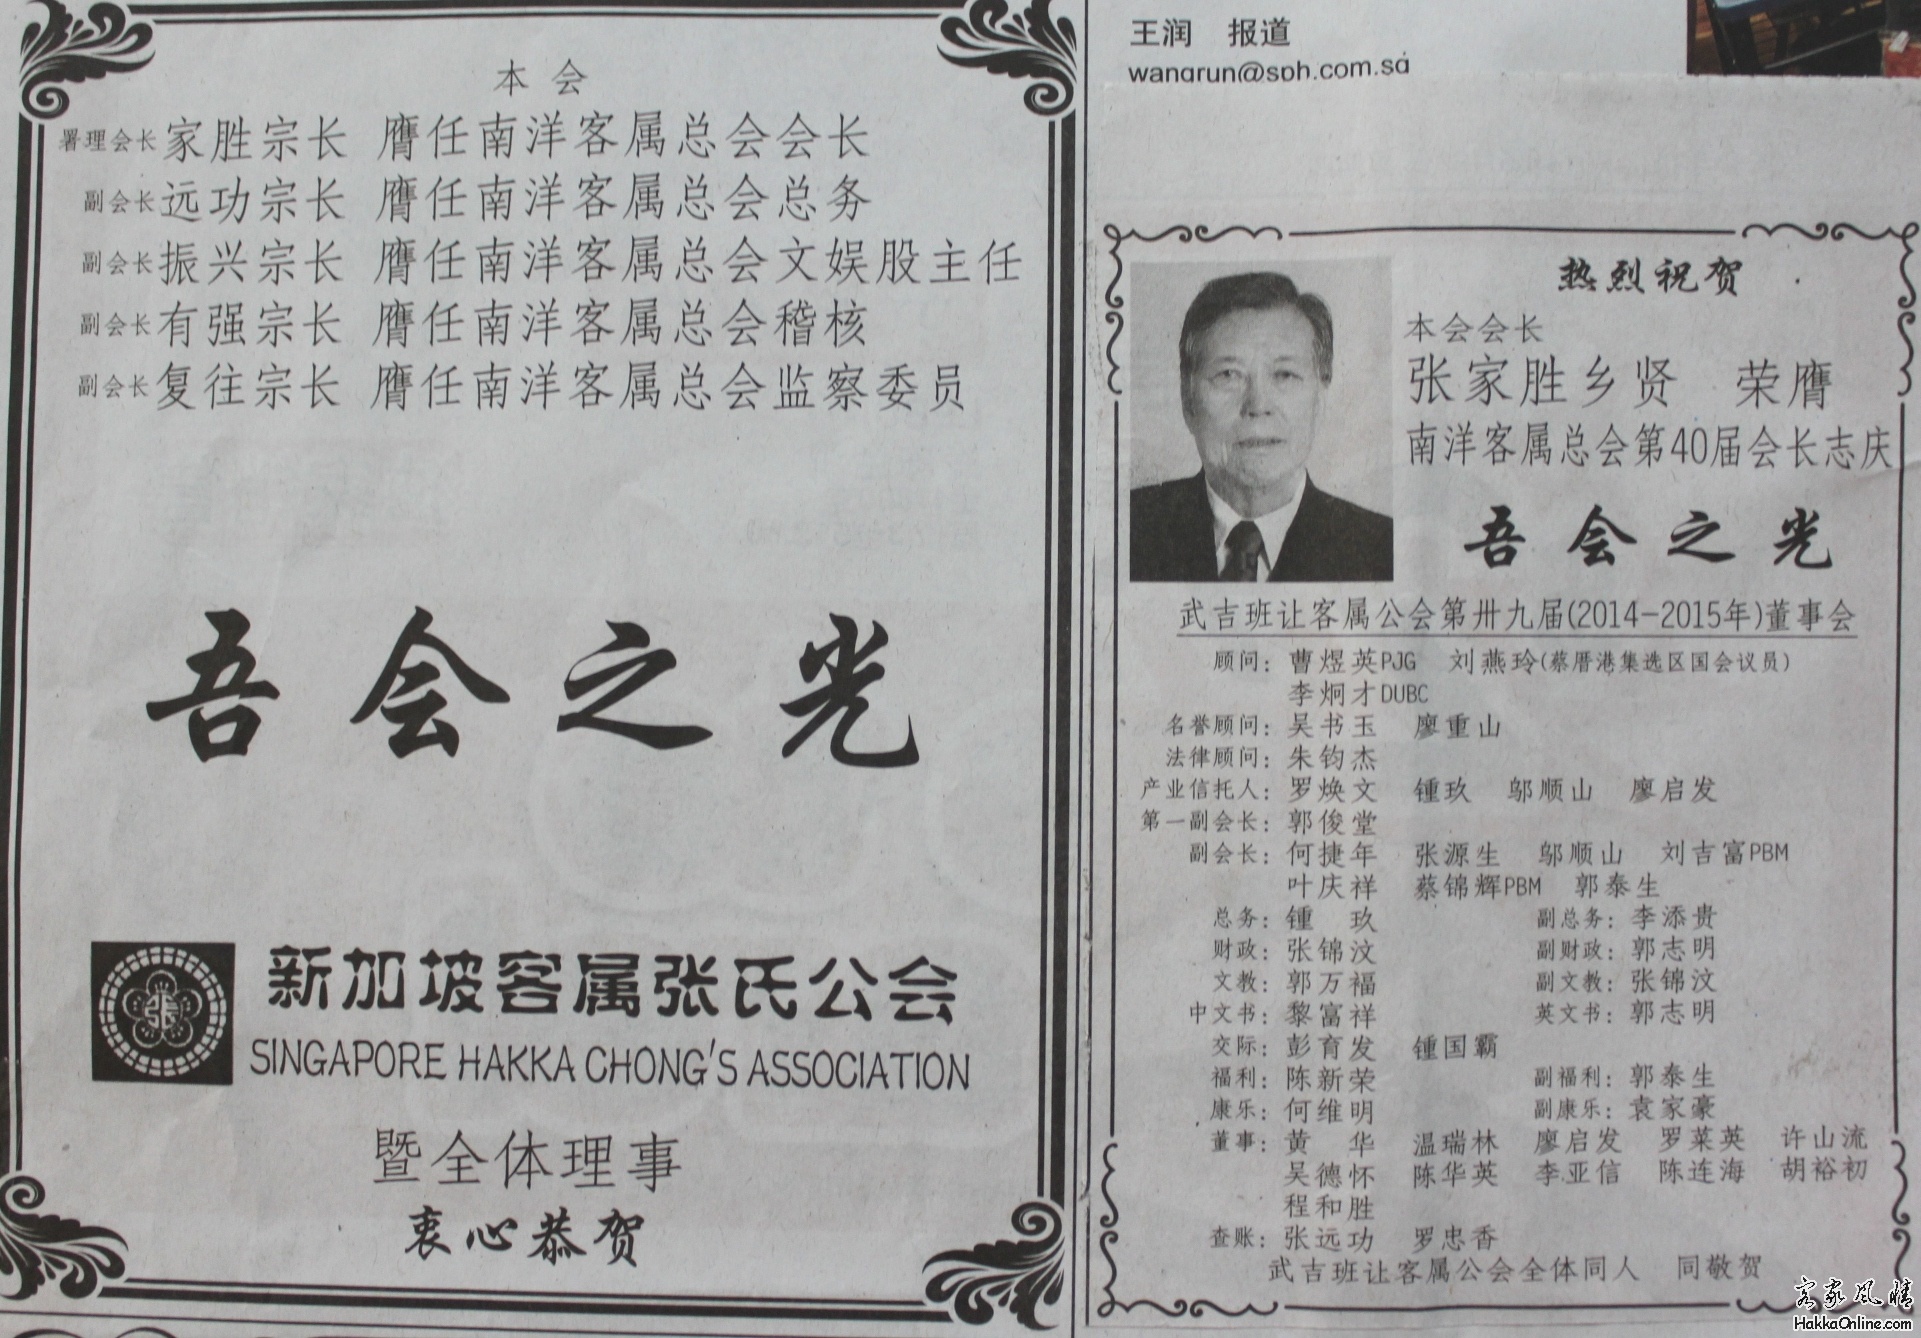 本会
署理会长 家胜宗长 膺任南洋客属总会会长
副会长 远功宗长 膺任南洋客属总会总务
副会长 振兴宗长 膺任南洋客属总会文娱股主任
副会长 有强宗长 膺任南洋客属总会稽核
副会长 复往宗长 膺任南洋客属总会监察委员
吾会之光
张
新加坡客属张氏公会
SINGAPORE HAKKA CHONG'S ASSOCIATION
暨全体理事
衷心恭贺
王润 报道
wangrun@sph.com.sg
热烈祝贺
本会会长
张家胜乡贤 荣膺
南洋客属总会第40届会长志庆
吾会之光
武吉班让客属公会第卅九届(2014-2015年)董事会
顾问: 曹煜英PJG 刘燕玲(蔡厝港集选区国会议员)
李炯才DUBC
名誉顾问: 吴书玉 廖重山
法律顾问: 朱钧杰
产业信托人: 罗焕文 锺玖 邬顺山 廖启发
第一副会长: 郭俊堂
副会长: 何捷年 张源生 邬顺山 刘吉富PBM
叶庆祥 蔡锦辉PBM 郭泰生
总务: 锺玖 副总务: 李添贵
财政: 张锦汶 副财政: 郭志明
文教: 郭万福 副文教: 张锦汶
中文书: 黎富祥 英文书: 郭志明
交际: 彭育发 锺国霸
福利: 陈新荣 副福利: 郭泰生
康乐: 何维明 副康乐: 袁家豪
董事: 黄华 温瑞林 廖启发 罗菜英 许山流
吴德怀 陈华英 李亚信 陈连海 胡裕初
程和胜
查账: 张远功 罗忠香
武吉班让客属公会全体同人 同敬贺
客家风情
HakkaOnline.com